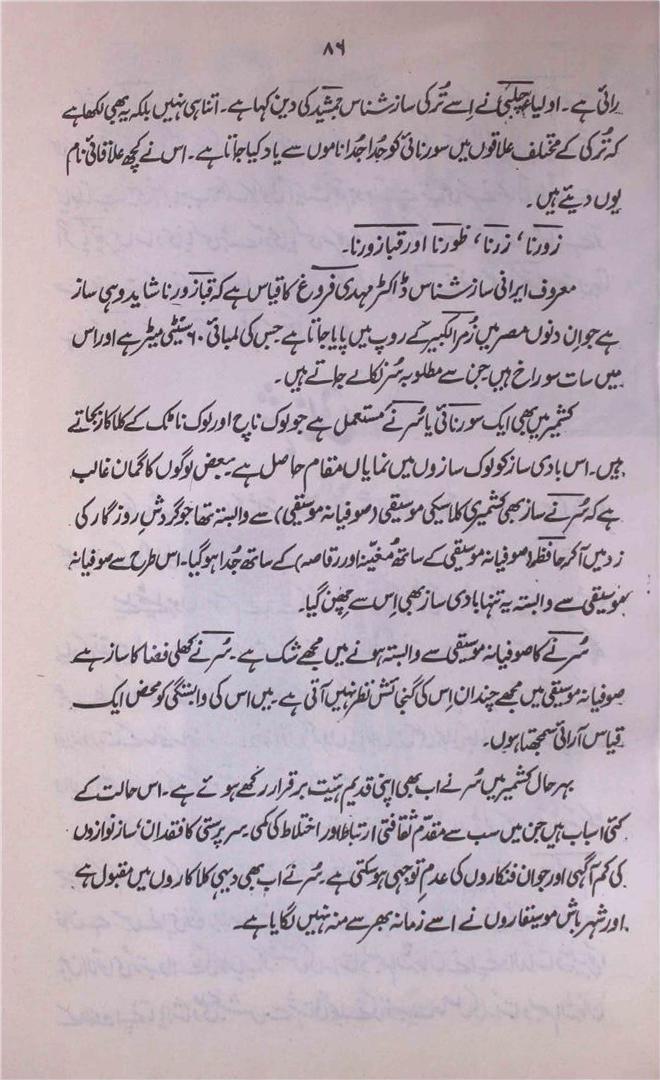 ۸۶
رائی ہے۔ اولیاء چلپی نے اِسے تُرکی ساز شناس جمشید کی دین کہا ہے۔ اتنا ہی نہیں بلکہ یہ بھی لکھا ہے
کہ تُرکی کے مختلف علاقوں میں سورنائی کو جُدا جُدا ناموں سے یاد کیا جاتا ہے۔ اس نے کچھ علاقائی نام
یوں دیئے ہیں۔
زورنا، زرنا، ظورنا اور قبازورنا۔
معروف ایرانی ساز شناس ڈاکٹر مہدی فروغ کا قیاس ہے کہ قبازورنا شاید وہی ساز
ہے جو اِن دنوں مصر میں زُمرالکبیر کے روپ میں پایا جاتا ہے جس کی لمبائی ۶۰ سنٹی میٹر ہے اور اس
میں سات سوراخ ہیں جن سے مطلوبہ سُر نکالے جاتے ہیں۔
کشمیر میں بھی ایک سورنائی یا سُرنے مستعمل ہے جو لوک ناچ اور لوک ناٹک کے کلاکار بجاتے
ہیں۔ اس بادی ساز کو لوک سازوں میں نمایاں مقام حاصل ہے۔ بعض لوگوں کا گمان غالب
ہے کہ سُرنے ساز بھی کشمیری کلاسیکی موسیقی (صوفیانہ موسیقی) سے وابستہ تھا جو گردشِ روزگار کی
زد میں آ کر حافظہ (صوفیانہ موسیقی کے ساتھ مُغنیّہ اور رقاصہ) کے ساتھ جُدا ہو گیا۔ اس طرح سے صوفیانہ
موسیقی سے وابستہ یہ تنہا بادی ساز بھی اِس سے چھِن گیا۔
سُرنے کا صوفیانہ موسیقی سے وابستہ ہونے میں مجھے شک ہے۔ سُرنے کھلی فضا کا ساز ہے
صوفیانہ موسیقی میں مجھے چنداں اِس کی گنجائش نظر نہیں آتی ہے۔ میں اس کی وابستگی کو محض ایک
قیاس آرائی سمجھتا ہوں۔
بہر حال کشمیر میں سُرنے اب بھی اپنی قدیم ہیئت برقرار رکھے ہوئے ہے۔ اس حالت کے
کئی اسباب ہیں جن میں سب سے مقدّم ثقافتی ارتباط اور اختلاط کی کمی۔ سر پرستی کا فقدان، ساز نوازوں
کی کم آگہی اور جوان فنکاروں کی عدمِ توجہی ہو سکتی ہے۔ سُرنے اب بھی دیہی کلاکاروں میں مقبول ہے
اور شہر باش موسیقاروں نے اسے زمانہ بھر سے منہ نہیں لگایا ہے۔